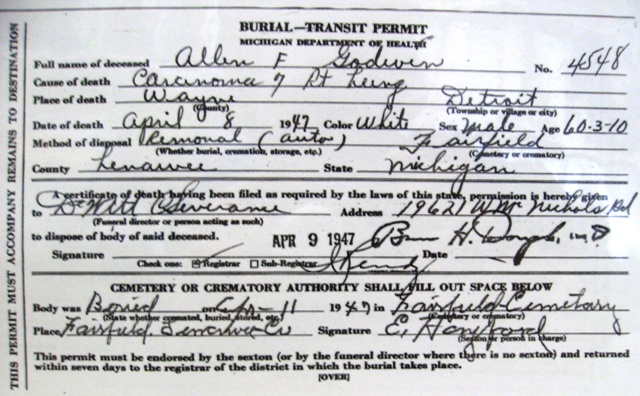 BURIAL—TRANSIT PERMIT
MICHIGAN DEPARTMENT OF HEALTH
Full name of deceased Allen F Godwin No. 4548
Cause of death Carcinoma of Rt Lung
Place of death Wayne Detroit
(County) (Township or village or city)
Date of death April 8 1947 Color White Sex Male Age 60-3-10
Method of disposal Removal (auto) Fairfield
(Whether burial, cremation, storage, etc.) (Cemetery or crematory)
County Lenawee State Michigan
A certificate of death having been filed as required by the laws of this state, permission is hereby given
to DeWitt C Severance Address 19621 W Mc Nichols Rd
(Funeral director or person acting as such)
to dispose of body of said deceased. APR 9 1947 H. M D
Signature Date
Check one: Registrar Sub-Registrar
CEMETERY OR CREMATORY AUTHORITY SHALL FILL OUT SPACE BELOW
Body was Buried on Apr-11 1947 in Fairfield Cemetary
(State whether cremated, buried, stored, etc.) (Cemetery or crematory)
Place Fairfield Lenawee Co Signature C,
(Sexton or person in charge)
This permit must be endorsed by the sexton (or by the funeral director where there is no sexton) and returned
within seven days to the registrar of the district in which the burial takes place.
[OVER]
THIS PERMIT MUST ACCOMPANY REMAINS TO DESTINATION